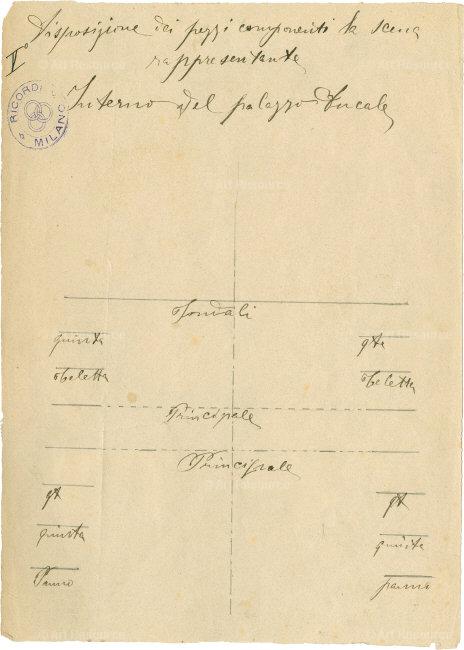 Disposizione dei pezzi componenti la scena
Iº
rappresentante
Interno del palazzo Ducale
RICORDI
MILANO
Fondali
quinta qta
obeletta obeletta
Principale
Principale
qt qt
quinta quinta
Panno panno